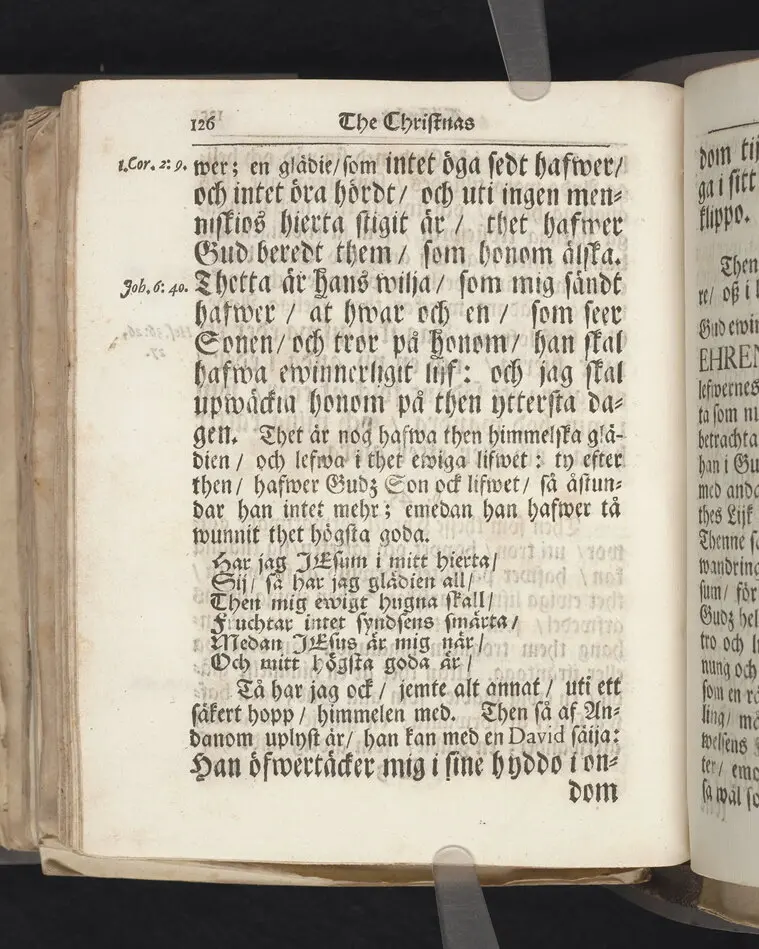 126 The Christnas
1.Cor. 2: 9. wer; en glädie/ som intet öga sedt hafwer/
och intet öra hördt/ och uti ingen men-
niskios hierta stigit är/ thet hafwer
Gud beredt them/ som honom älska.
Joh. 6: 40. Thetta är Hans wilja/ som mig sändt
hafwer/ at hwar och en/ som seer
Sonen/ och tror på Honom/ han skal
hafwa ewinnerligit lijf: och jag skal
upwäckia honom på then yttersta da-
gen. Thet är nog hafwa then himmelska glä-
dien/ och lefwa i thet ewiga lifwet: ty efter
then/ hafwer Gudz Son ock lifwet/ så åstun-
dar han intet mehr; emedan han hafwer tå
wunnit thet högsta goda.
Har jag JEsum i mitt hierta/
Sij/ så har jag glädien all/
Then mig ewigt hugna skall/
Fruchtar intet syndsens smärta/
Medan JEsus är mig när/
Och mitt högsta goda är/
Tå har jag ock/ jemte alt annat/ uti ett
säkert hopp/ himmelen med. Then så af An-
danom uplyst är/ han kan med en David säija:
Han öfwertäcker mig i sine hyddo i on-
dom
dom tij
ga i sitt
klippo.
Then
re/ oß i l
Gud ewin
EHREN
lefwernes
ta som nu
betrachta
han i Gu
med anda
thes Lijk
Thenne så
wandring
sum/ för
Gudz hel
tro och l
nung och
som en rö
ling/ mä
welsens
ter/ emo
så wäl so